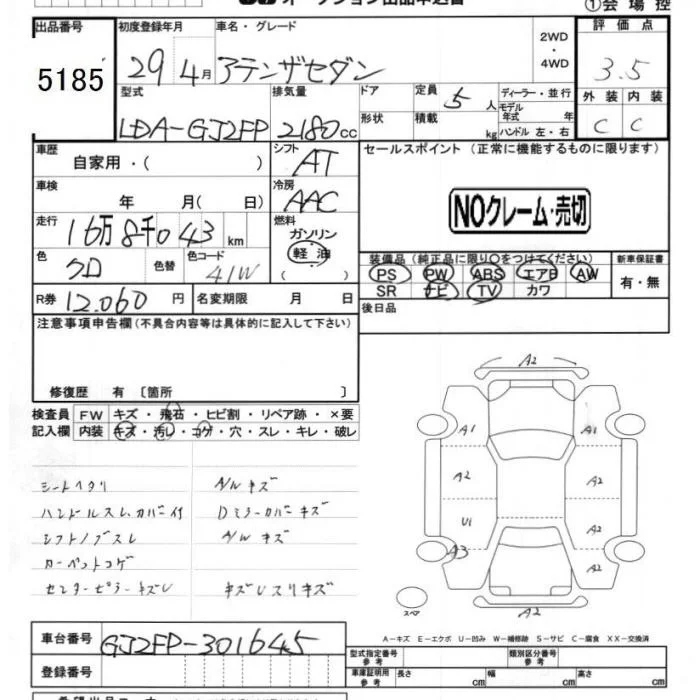 オークション出品申込書
①会場控
出品番号 初度登録年月 車名・グレード 評価点
5185 29年 4月 アテンザセダン 2WD・4WD 3.5
型式 排気量 ドア 定員 5人 ディーラー・並行 外装 内装
LDA-GJ2FP 2180cc 形状 積載 kg モデル年式 年 ハンドル 左・右 C C
車歴 自家用・( ) シフト AT セールスポイント (正常に機能するものに限ります)
車検 年 月( 日) 冷房 AAC
NOクレーム・売切
走行 16万8千043km 燃料 ガソリン 軽油 ( )
色 クロ 色替 色コード 41W
装備品(純正品に限り○をつけてください) 新車保証書
PS PW ABS エアB AW 有・無
SR ナビ TV カワ
R券 12,060円 名変期限 月 日 後日品
注意事項申告欄(不具合内容等は具体的に記入して下さい)
修復歴 有 〔箇所 〕
検査員 FW キズ・飛石・ヒビ割・リペア跡・×要
記入欄 内装 キズ・汚レ・コゲ・穴・スレ・キレ・破レ
シートヘタリ A/Wキズ
ハンドルスレ、カバー付 Dミラーカバーキズ
シフトノブスレ A/Wキズ
カーペットコゲ
センターピラーキズU キズUスリキズ
A2
A1 A1
A2 A2
U1 A2
A3 A2
A2
スペア
A-キズ E-エクボ U-凹み W-補修跡 S-サビ C-腐食 XX-交換済
車台番号 GJ2FP-301645
登録番号
型式指定番号 参考 類別区分番号 参考
車庫証明用 参考 長さ cm 幅 cm 高さ cm